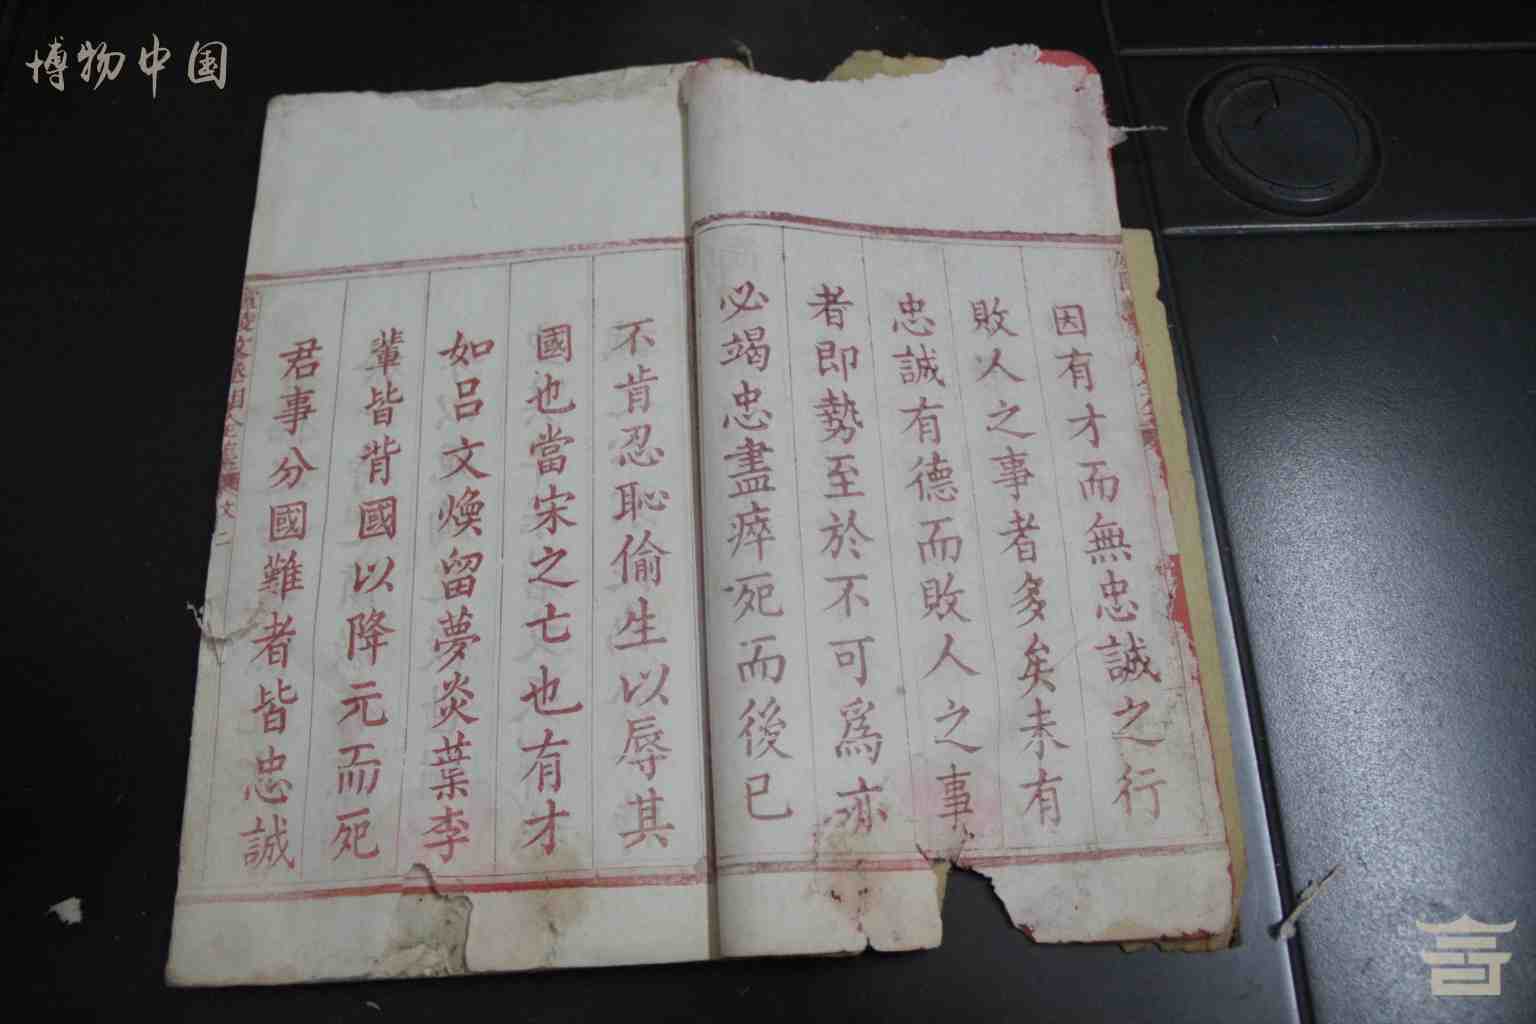 博物中国
因有才而無忠誠之行
敗人之事者多矣未有
忠誠有德而敗人之事
者即勢至於不可爲亦
必竭忠盡瘁死而後已
不肯忍恥偷生以辱其
國也當宋之亡也有才
如呂文煥留夢炎葉李
輩皆背國以降元而死
君事分國難者皆忠誠
文 二